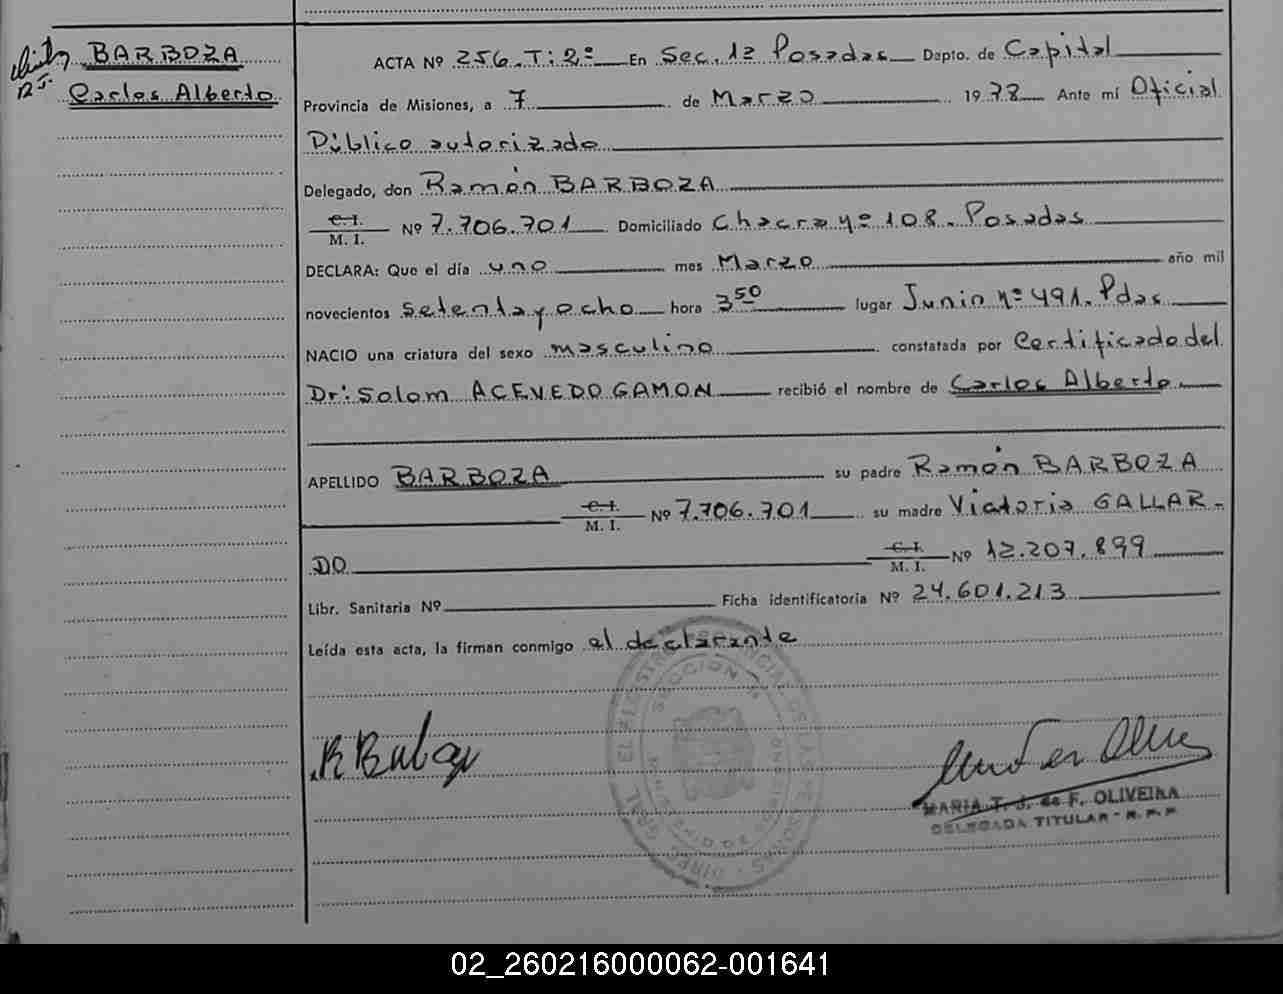 BARBOZA
Carlos Alberto
ACTA Nº 256. T: 2º En Sec. 1ª Posadas Dpto. de Capital
Provincia de Misiones, a 7 de Marzo 1978 Ante mí Oficial
Público autorizado
Delegado, don Ramón BARBOZA
C. I.
M. I. Nº 7.706.701 Domiciliado Chacra nº 108. Posadas
DECLARA: Que el día uno mes Marzo año mil
novecientos setenta y ocho hora 3 50 lugar Junin nº 491. Pdas
NACIO una criatura del sexo masculino constatada por Certificado del
Dr: Solom ACEVEDO GAMON recibió el nombre de Carlos Alberto
APELLIDO BARBOZA su padre Ramón BARBOZA
C. I.
M. I. Nº 7.706.701 su madre Victoria GALLAR-
DO C. I.
M. I. Nº 12.207.899
Libr. Sanitaria Nº Ficha identificatoria Nº 24.601.213
Leída esta acta, la firman conmigo el declarante
MARIA T. J. de F. OLIVEIRA
DELEGADA TITULAR - R. P. P.
02_260216000062-001641